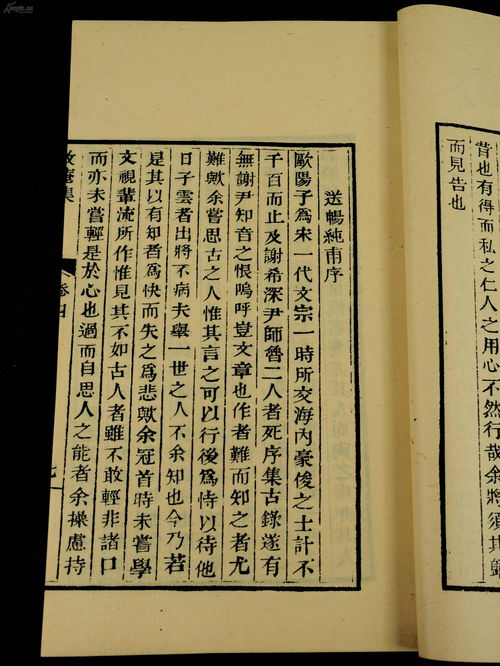 昔也有得而私之仁人之用心不然行哉余將須其歸
而見告也
送暢純甫序
歐陽子為宋一代文宗一時所交海內豪俊之士計不
千百而止及謝希深尹師魯二人者死序集古錄遂有
無謝尹知音之恨嗚呼豈文章也作者難而知之者尤
難歟余嘗思古之人惟其言之可以行後為恃以待他
日子雲者出將不病未舉一世之人不余知也今乃若
是其以有知者為快而失之為悲歟余冠首時未嘗學
文視輩流所作惟見其不如古人者雖不敢輕非諸口
而亦未嘗輕是於心也過而自思人之能者余操慮持
牧庵集
卷四
七
Kongfz.cn